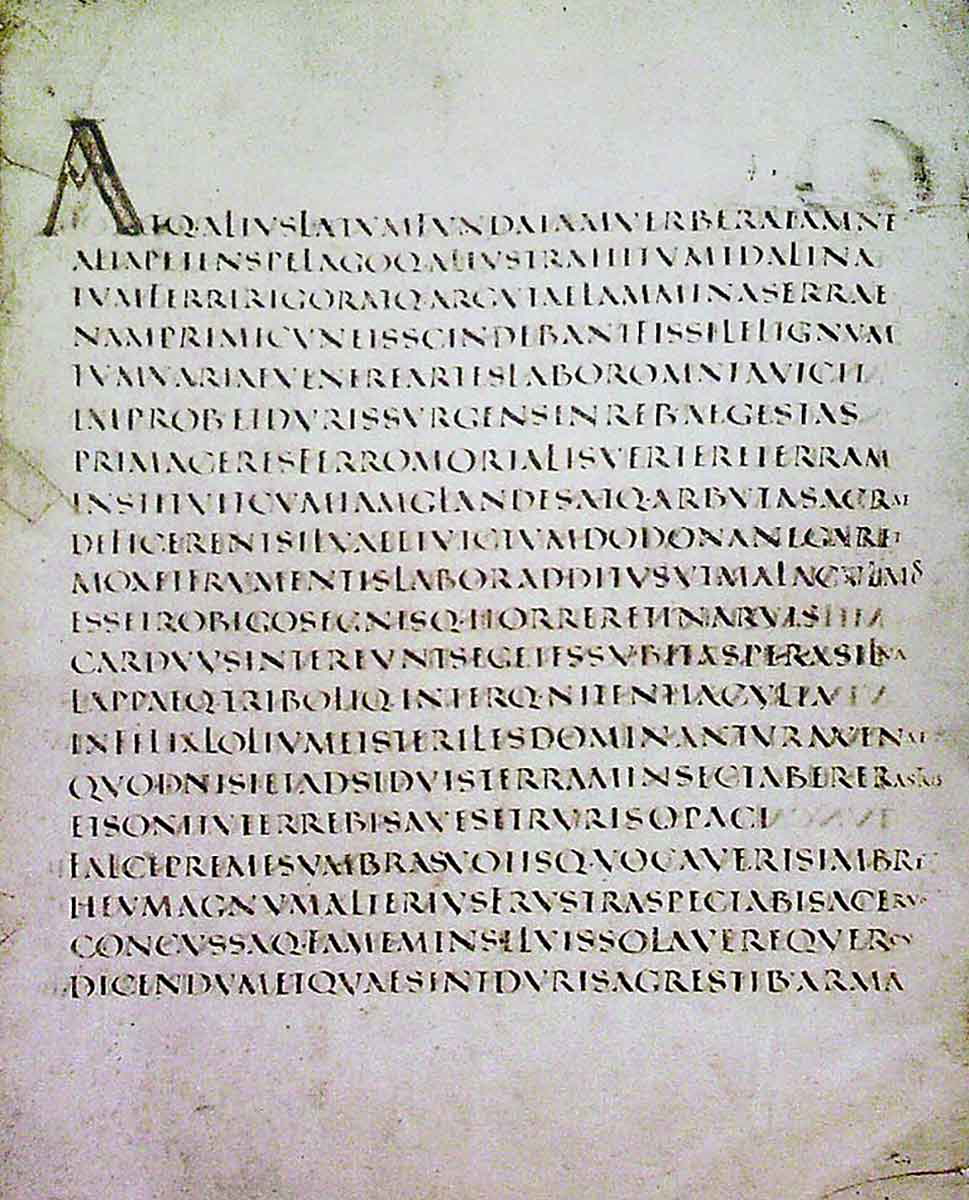 ATQ·ALIVSLATVMFVNDAIAMVERBERATAMNE
ALTAPETENSPELAGOQ·ALIVSTRAHITVMIDALINA
TVMFERRIRIGORATQ·ARGVTAELAMMINASERRAE
NAMPRIMICVNEISSCINDEBANTFISSILELIGNVM
TVMVARIAEVENEREARTESLABOROMNIAVICIT
IMPROBETDVRISSVRGENSINREB·AEGESTAS
PRIMACERESFERROMORTALISVERTERETERRAM
INSTITVITCVMIAMGLANDESATQ·ARBVTASACRAE
DEFICERENTSILVAEETVICTVMDODONANEGARET
MOXETFRVMENTISLABORADDITVSVTMALA
ESSETROBIGOSEGNISQ·HORRERETINARVIS
CARDVVSINTEREVNTSEGETESSVBITASPERASILVA
LAPPAEQ·TRIBOLIQ·INTERQ·NITENTIACVLTA
INFELIXLOLIVMETSTERILESDOMINANTVRAVENAE
QVODNISIETADSIDVISTERRAMINSECTABERERASTRIS
ETSONITVTERREBISAVESETRVRISOPACI
FALCEPREMESVMBRASVOTISQ·VOCAVERISIMBRE
HEVMAGNVMALTERIVSFRVSTRASPECTABISACERVV
CONCVSSAQ·FAMEMINSILVISSOLAVEREQVERCV
DICENDVMETQVAESINTDVRISAGRESTIB·ARMA